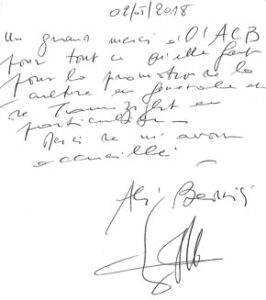 02/05/2018
Un grand merci à l'ACB
pour tout ce qu'elle fait
pour la promotion de la
culture en générale et
de Tamazight en
particulier
Merci de m'avoir
accueilli